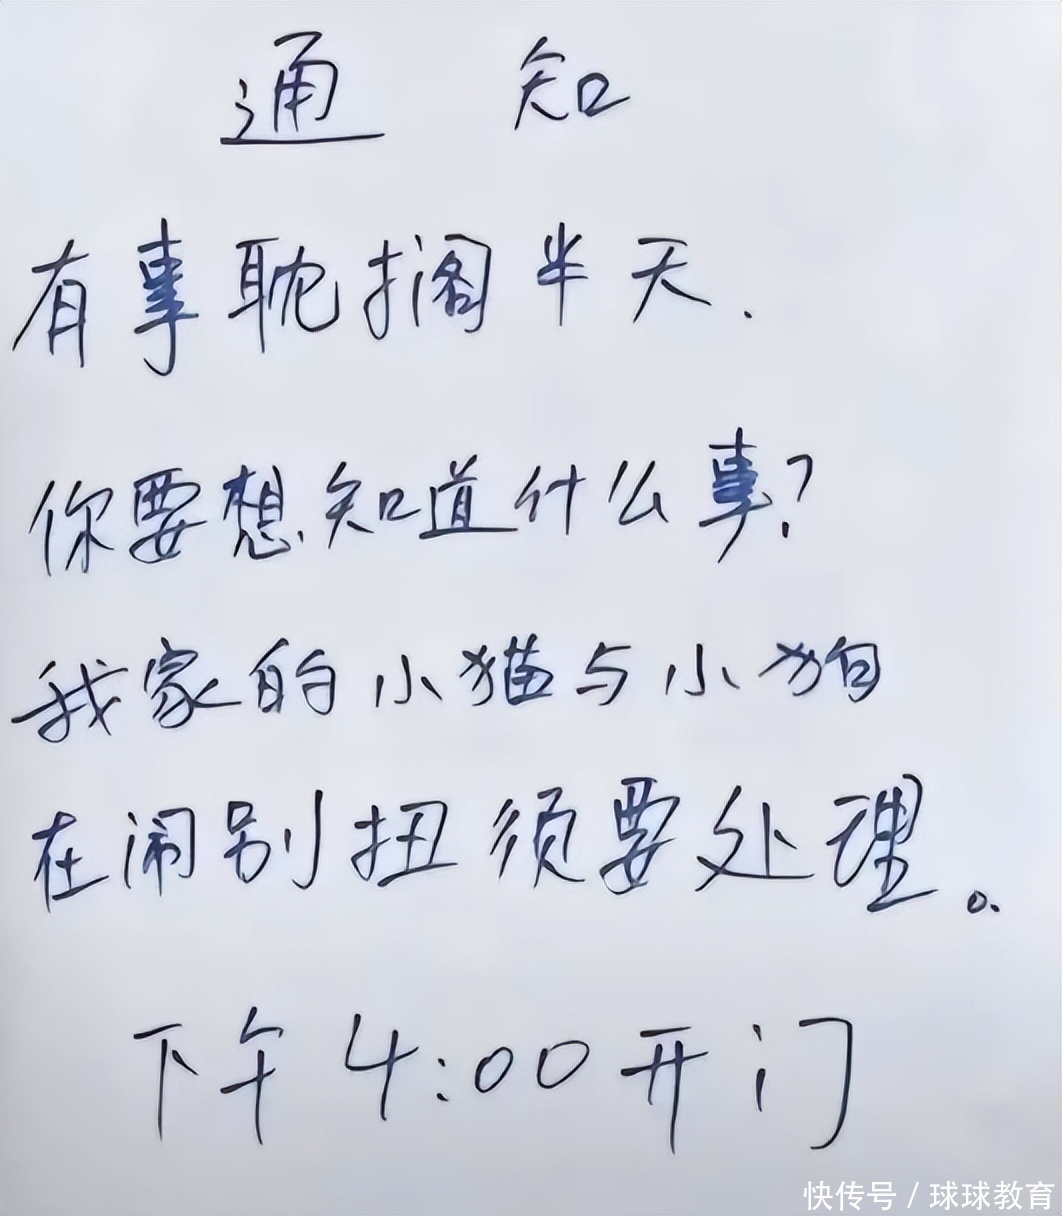 通知
有事耽搁半天.
你要想知道什么事?
我家的小猫与小狗
在闹别扭须要处理。
下午4:00开门
快传号/球球教育